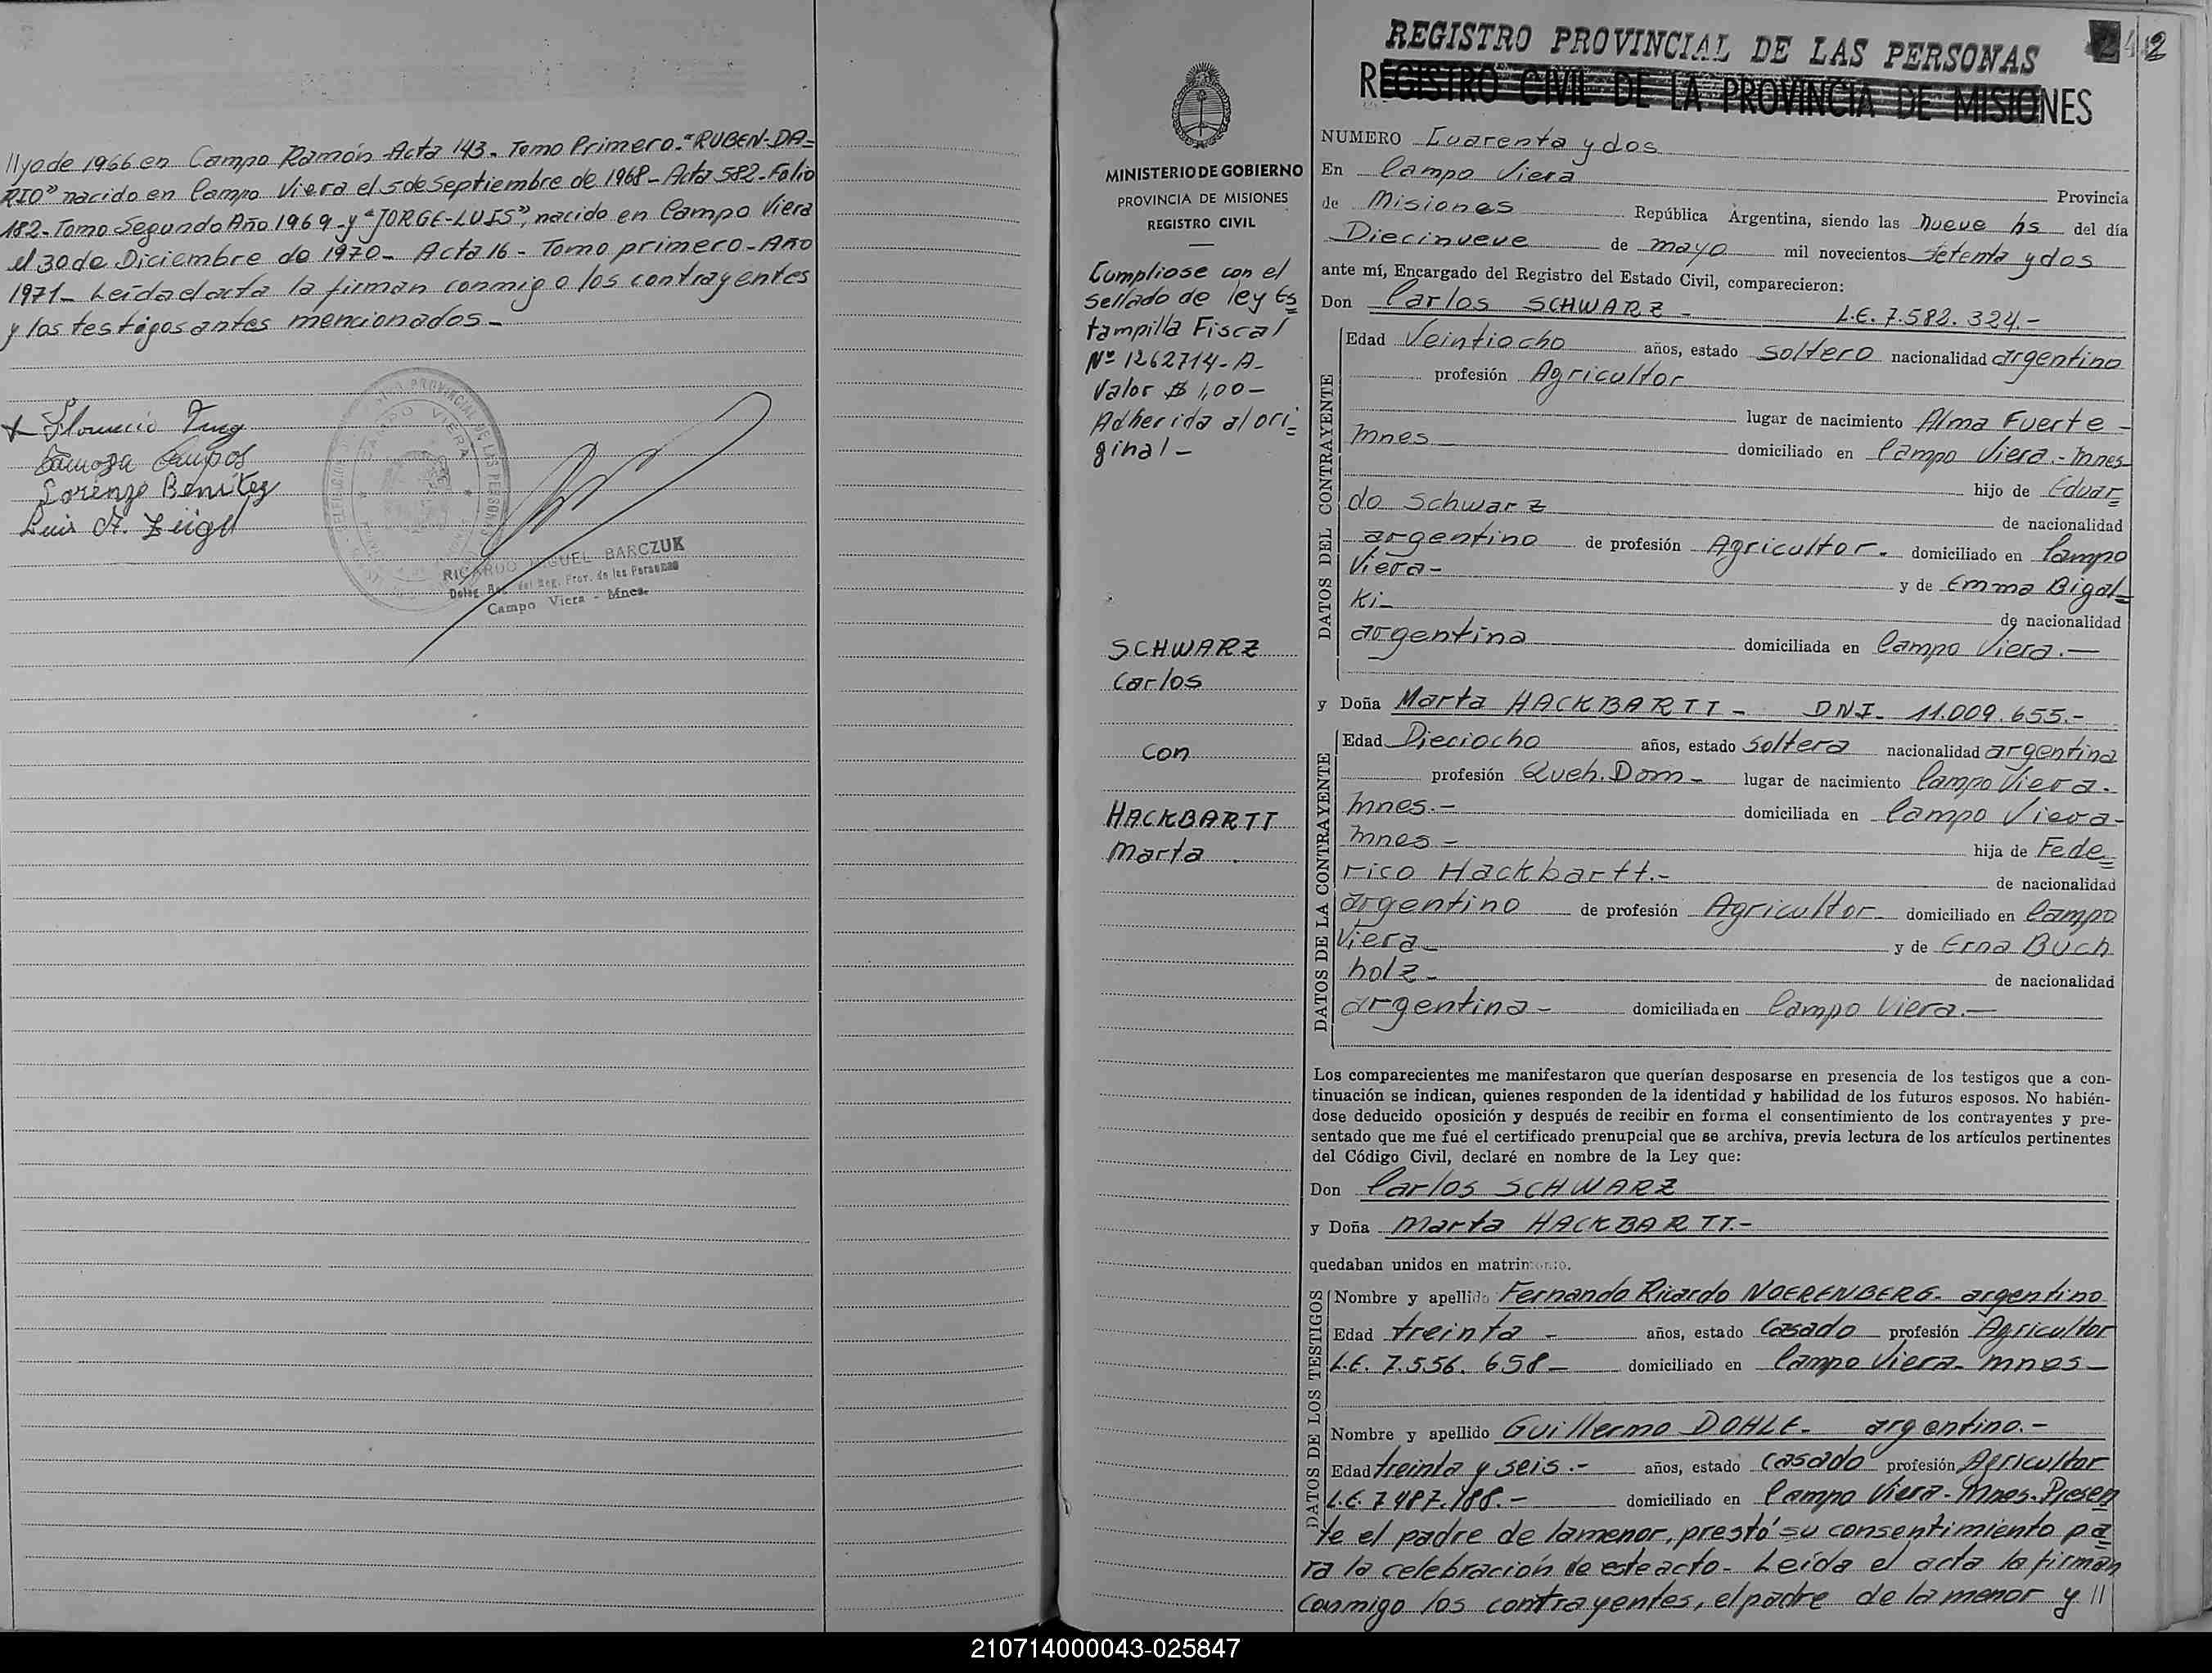 //yo de 1966 en Campo Ramón Acta 143. Tomo Primero.- "RUBEN-DA=
RIO" nacido en Campo Viera el 5 de Septiembre de 1968- Acta 582- Folio
182- Tomo Segundo Año 1969 - y "JORGE-LUIS", nacido en Campo Viera
el 30 de Diciembre de 1970- Acta 16 - Tomo primero - Año
1971- Leida el acta la firman conmigo los contrayentes
y los testigos antes mencionados-
Campos
Lorenzo Benitez
Luis A.
RICARDO MIGUEL BARCZUK
Deleg. Reg. del Reg. Prov. de las Personas
Campo Viera - Mnes.
MINISTERIO DE GOBIERNO
PROVINCIA DE MISIONES
REGISTRO CIVIL
Cumpliose con el
sellado de ley Es
tampilla Fiscal
Nº 1262714-A-
Valor $ 1,00-
Adherida al ori=
ginal-
SCHWARZ
Carlos
Con
HACKBARTT
Marta
REGISTRO PROVINCIAL DE LAS PERSONAS
REGISTRO CIVIL DE LA PROVINCIA DE MISIONES
NUMERO Cuarenta y dos
En Campo Viera
Provincia
de Misiones República Argentina, siendo las nueve hs del día
Diecinueve de mayo mil novecientos setenta y dos
ante mí, Encargado del Registro del Estado Civil, comparecieron:
Don Carlos SCHWARZ - L.E. 7.582.324.-
DATOS DEL CONTRAYENTE
Edad Veintiocho años, estado soltero nacionalidad argentino
profesión Agricultor
lugar de nacimiento Alma Fuerte -
mnes domiciliado en Campo Viera.- mnes-
hijo de Eduar=
do Schwarz de nacionalidad
argentino de profesión Agricultor - domiciliado en Campo
Viera- y de Emma Bigal=
ki- de nacionalidad
argentina domiciliada en Campo Viera.-
y Doña Marta HACKBARTT - DNI- 11.009.655.-
DATOS DE LA CONTRAYENTE
Edad Dieciocho años, estado soltera nacionalidad argentina
profesión Queh. Dom - lugar de nacimiento Campo Viera.
mnes.- domiciliada en Campo Viera-
mnes- hija de Fede=
rico Hackbartt.- de nacionalidad
argentino de profesión Agricultor- domiciliado en Campo
Viera- y de Erna Buch
holz- de nacionalidad
argentina- domiciliada en Campo Viera.-
Los comparecientes me manifestaron que querían desposarse en presencia de los testigos que a con-
tinuación se indican, quienes responden de la identidad y habilidad de los futuros esposos. No habién-
dose deducido oposición y después de recibir en forma el consentimiento de los contrayentes y pre-
sentado que me fué el certificado prenupcial que se archiva, previa lectura de los artículos pertinentes
del Código Civil, declaré en nombre de la Ley que:
Don Carlos SCHWARZ
y Doña Marta HACKBARTT.-
quedaban unidos en matrimonio.
DATOS DE LOS TESTIGOS
Nombre y apellido Fernando Ricardo NOERENBERG- argentino
Edad treinta - años, estado Casado profesión Agricultor
L.E. 7.556.658- domiciliado en Campo Viera- mnes-
Nombre y apellido Guillermo DOHLE- argentino.-
Edad treinta y seis.- años, estado casado profesión Agricultor
L.E. 7.487.188.- domiciliado en Campo Viera- Mnes. Presen
te el padre de la menor, prestó su consentimiento pa
ra la celebración de este acto- Leída el acta la firman
conmigo los contrayentes, el padre de la menor y //
210714000043-025847